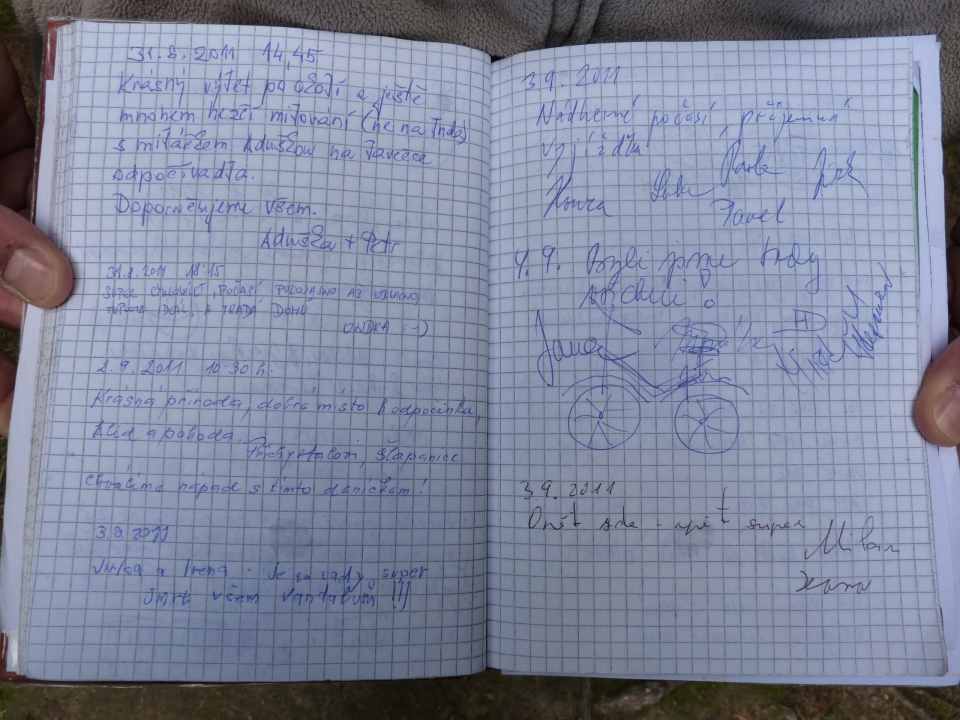 31.8.2011 14,45
Krásný výlet po okolí a ještě
mnohem hezčí milování (ne na
s miláčkem Aduškou na lavečce
odpočívadla.
Doporučujeme všem.
Aduška + Petr
31.8.2011 18:15
POČASÍ POLOJASNO AŽ
IDEAL, A TRADÁ DOMŮ
ONDRA :-)
2.9.2011 10:30 h.
Krásná příroda, dobré místo k odpočinku,
klid a pohoda.
Šlapanice
Chválíme nápad s tímto deníčkem!
3.9.2011
a Irena - Je to tady super
Smrt všem vandalům !!!
3.9.2011
Nádherné počasí, příjemná
vyjížďka
Pavla Jirk
Honza
Pavel
4.9. Byli jsme tady
Jana
3.9.2011
Opět zde - opět super
Milan